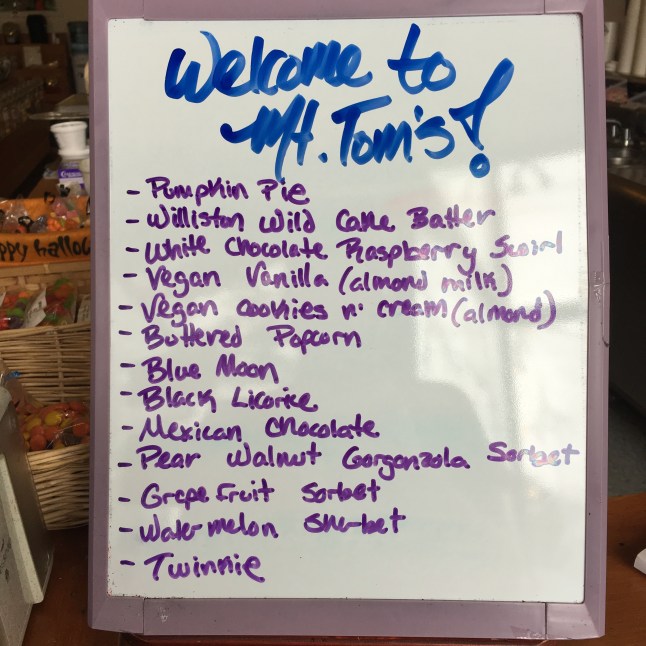 Welcome to
Mt. Tom's!
- Pumpkin Pie
- Williston Wild Cake Batter
- White Chocolate Raspberry Swirl
- Vegan Vanilla (almond milk)
- Vegan cookies n' cream (almond)
- Buttered Popcorn
- Blue Moon
- Black Licorice
- Mexican Chocolate
- Pear Walnut Gorgonzola Sorbet
- Grapefruit Sorbet
- Watermelon Sherbet
- Twinnie
ppy hallo